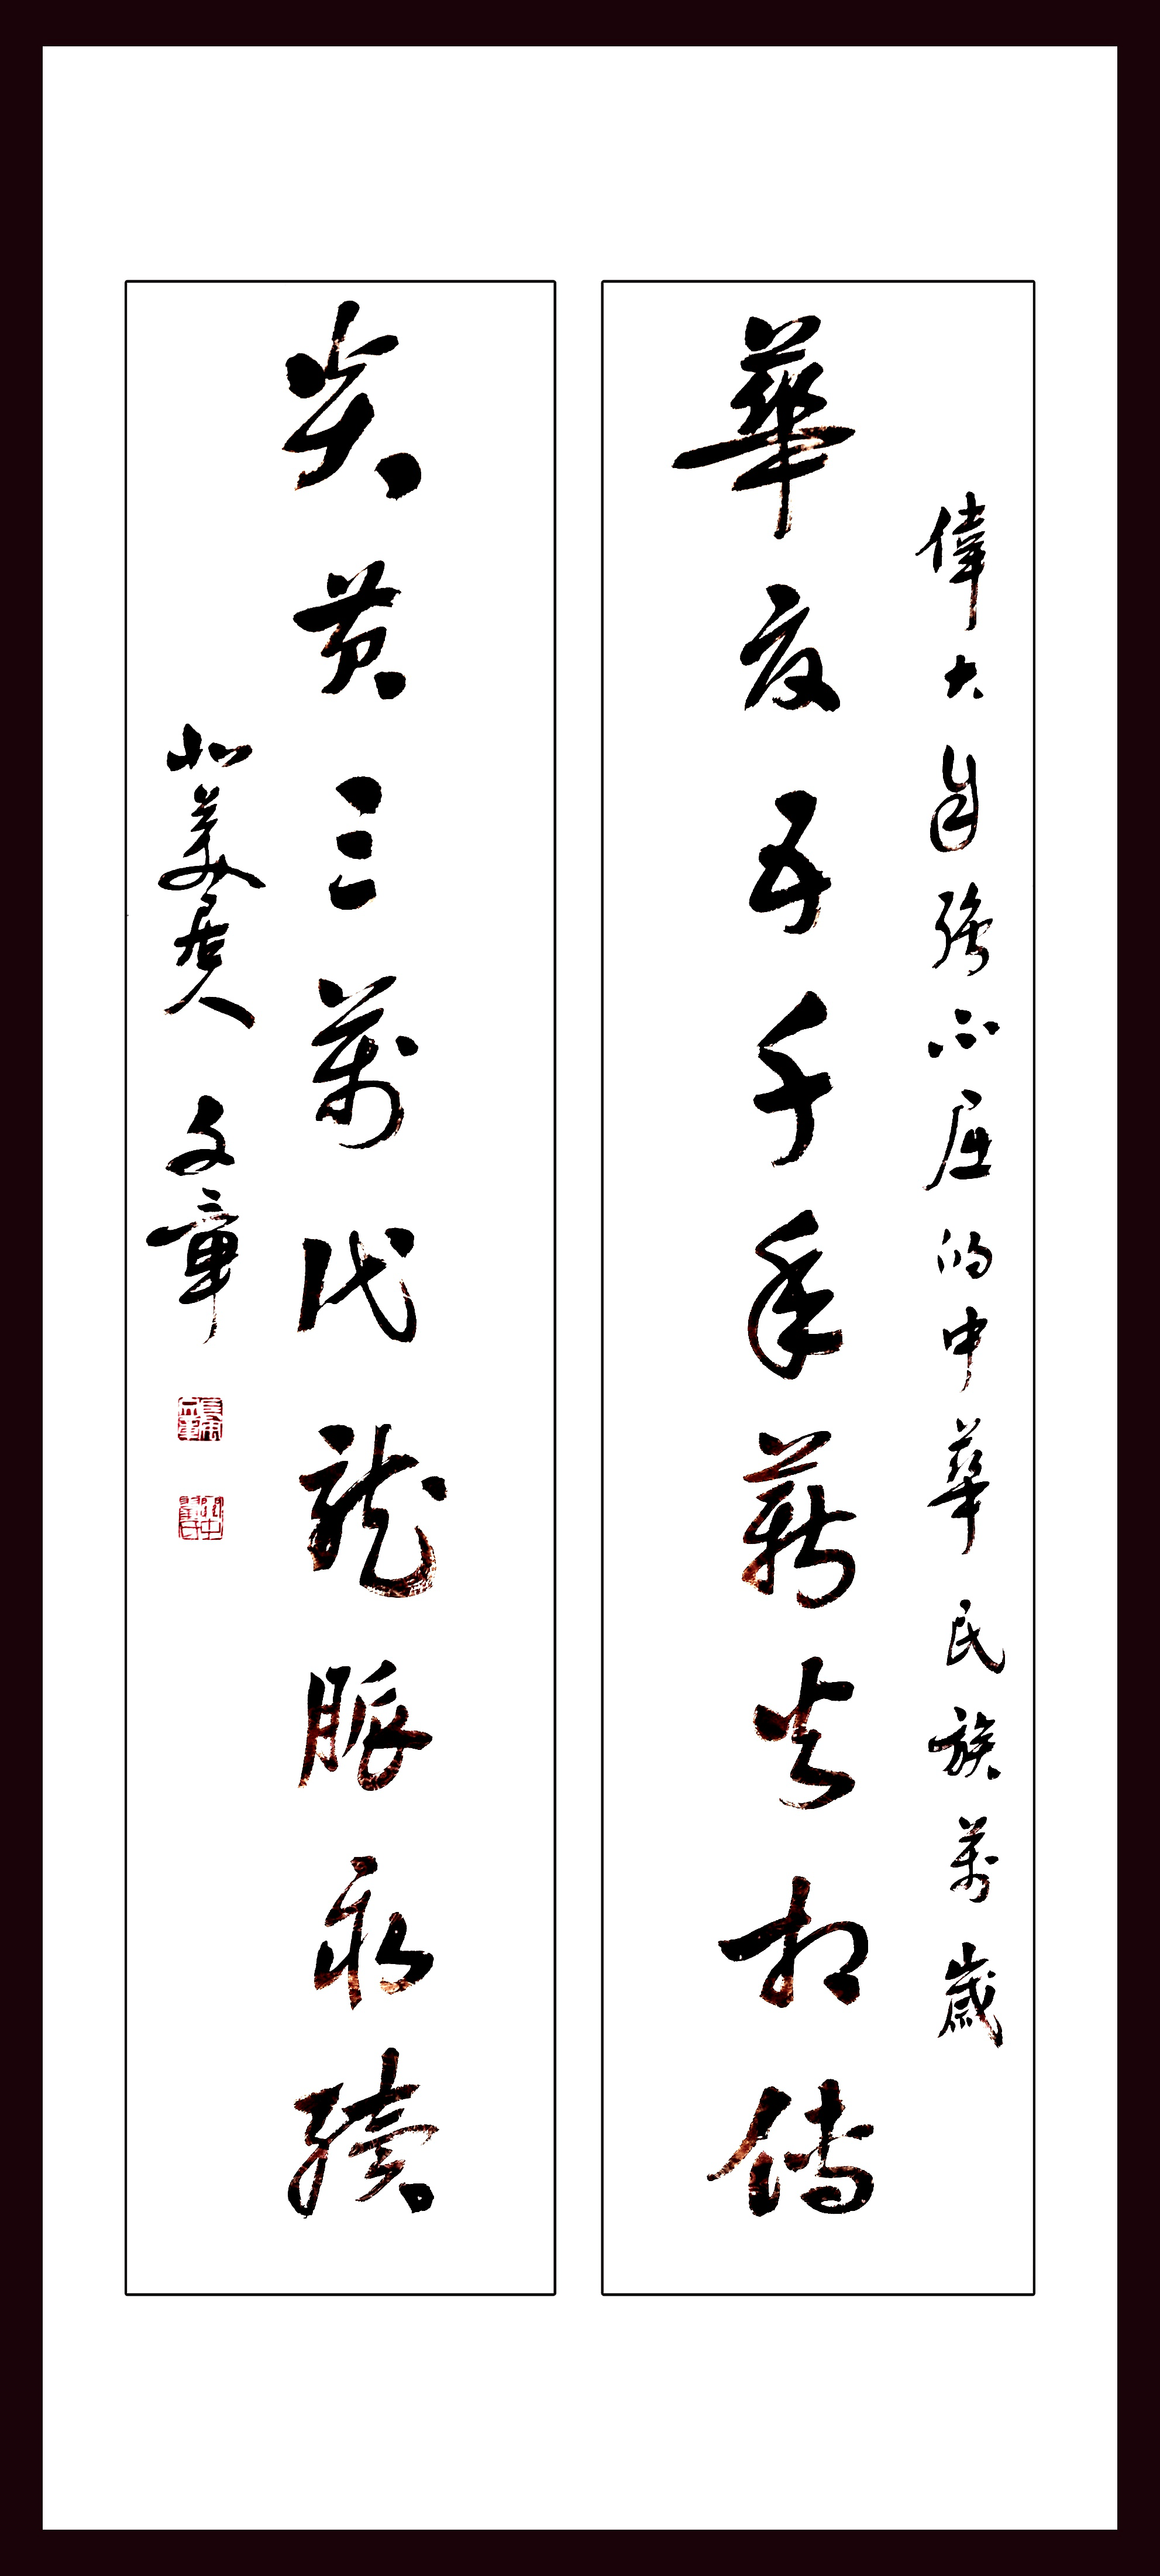 偉大自強不屈的中華民族萬歲
華夏五千年薪火相傳
炎黃三萬代龍脈永續
北美居人 文章